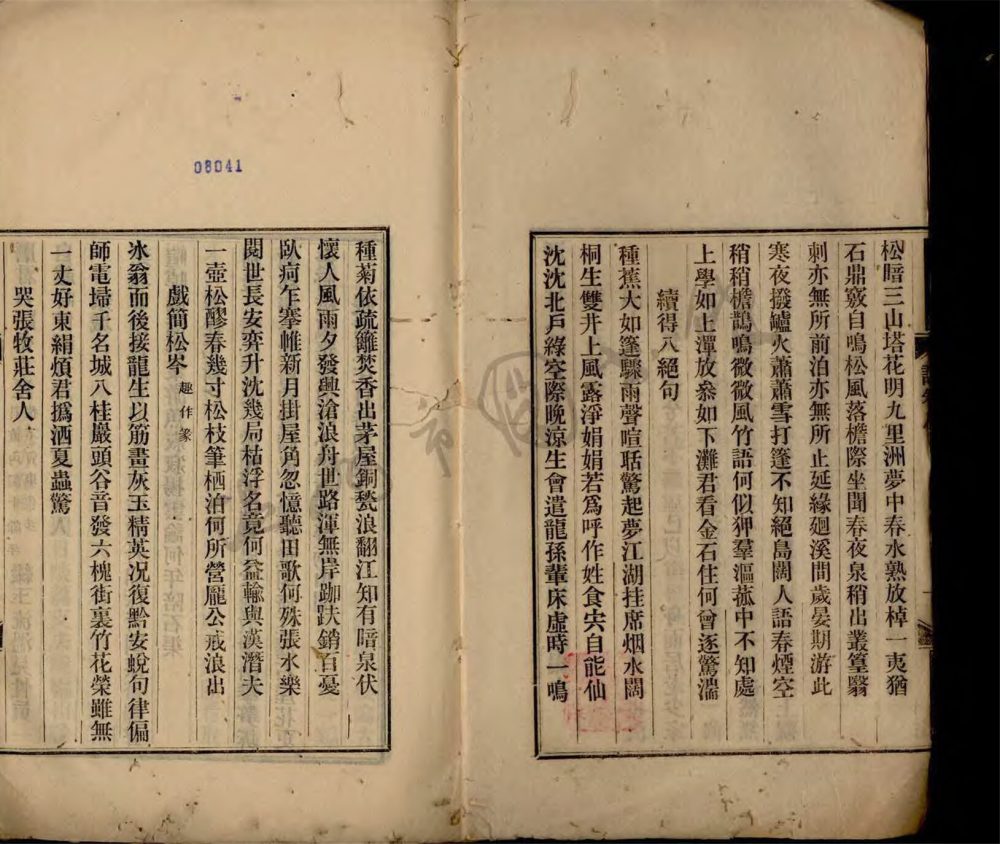 松暗三山塔花明九里洲夢中春水熟放棹一夷猶
石鼎敦自鳴松風落檐際坐聞春夜泉稍出叢篁翳
刺亦無所前泊亦無所止延緣廻溪間歲晏期游此
寒夜撥罏火蕭蕭雪打篷不知絕島闊人語春煙空
稍稍檐鵲鳴微微風竹語何似狎羣漚菰中不知處
上學如上潬放參如下灘君看金石住何曾逐驚湍
續得八絕句
種蕉大如篷驟雨聲喧聒驚起夢江湖挂席烟水闊
桐生雙井上風露淨娟娟若爲呼作姓食宍自能仙
沈沈北戸綠空際晚涼生會遣龍孫輩床虛時一鳴
08041
種菊依疏籬焚香出茅屋銅甃浪翻江知有暗泉伏
懷人風雨夕發興滄浪舟世路渾無岸跏趺銷百憂
臥疴乍搴帷新月掛屋角忽憶聽田歌何殊張水樂
閱世長安弈升沈幾局枯浮名竟何益輸與漢潛夫
一壺松醪春幾寸松枝筆栖泊何所營龐公戒浪出
戲簡松岑 趣作篆
冰翁而後接龍生以筋畫灰玉精英况復黔安蛻句律偏
師電埽千名城八桂巖頭谷音發六槐街裏竹花榮雖無
一丈好東絹煩君撝洒夏蟲驚
哭張牧莊舍人